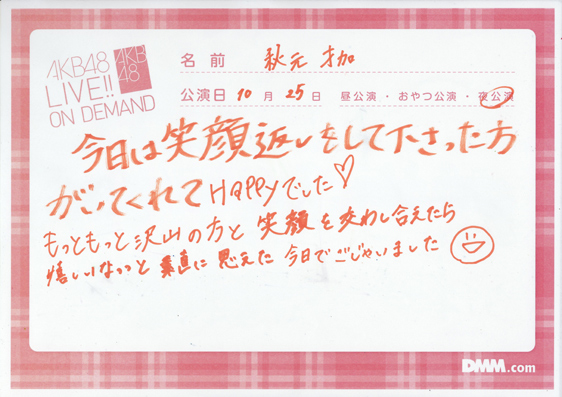 AKB48
LIVE!!
ON DEMAND
AKB
48
名前 秋元才加
公演日 10月25日 昼公演・おやつ公演・夜公演
今日は笑顔返しをして下さった方
がいてくれてHappyでした♡
もっともっと沢山の方と笑顔を交わし合えたら
嬉しいなっと素直に思えた今日でごじゃいました
DMM.com